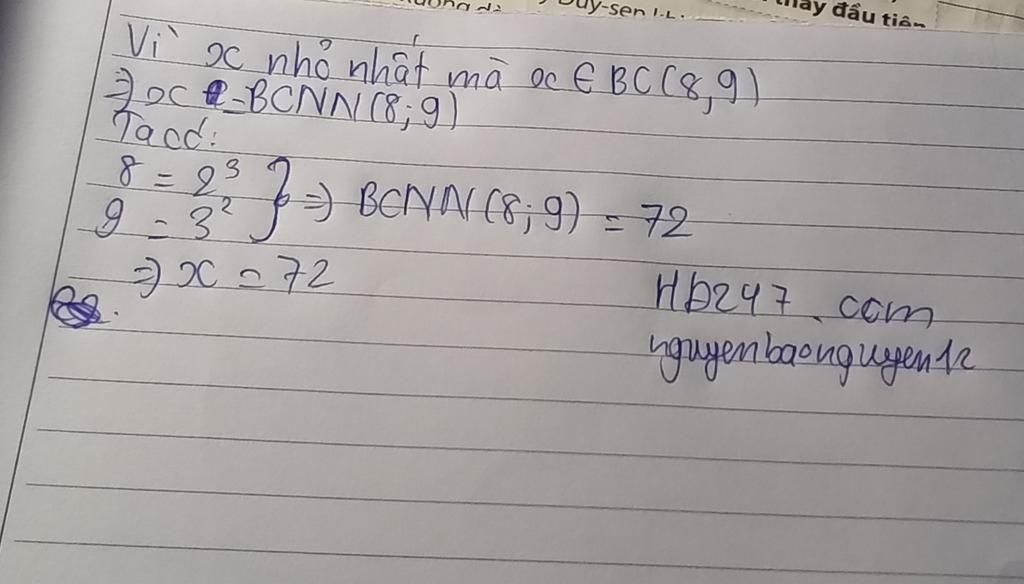 thầy đầu tiên
Vì x nhỏ nhất mà x ∈ BC(8,9)
⇒ x = BCNN(8;9)
Ta có:
8 = 2³
9 = 3² } ⇒ BCNN(8;9) = 72
⇒ x = 72
Hb247.com
nguyenbaonguyen12